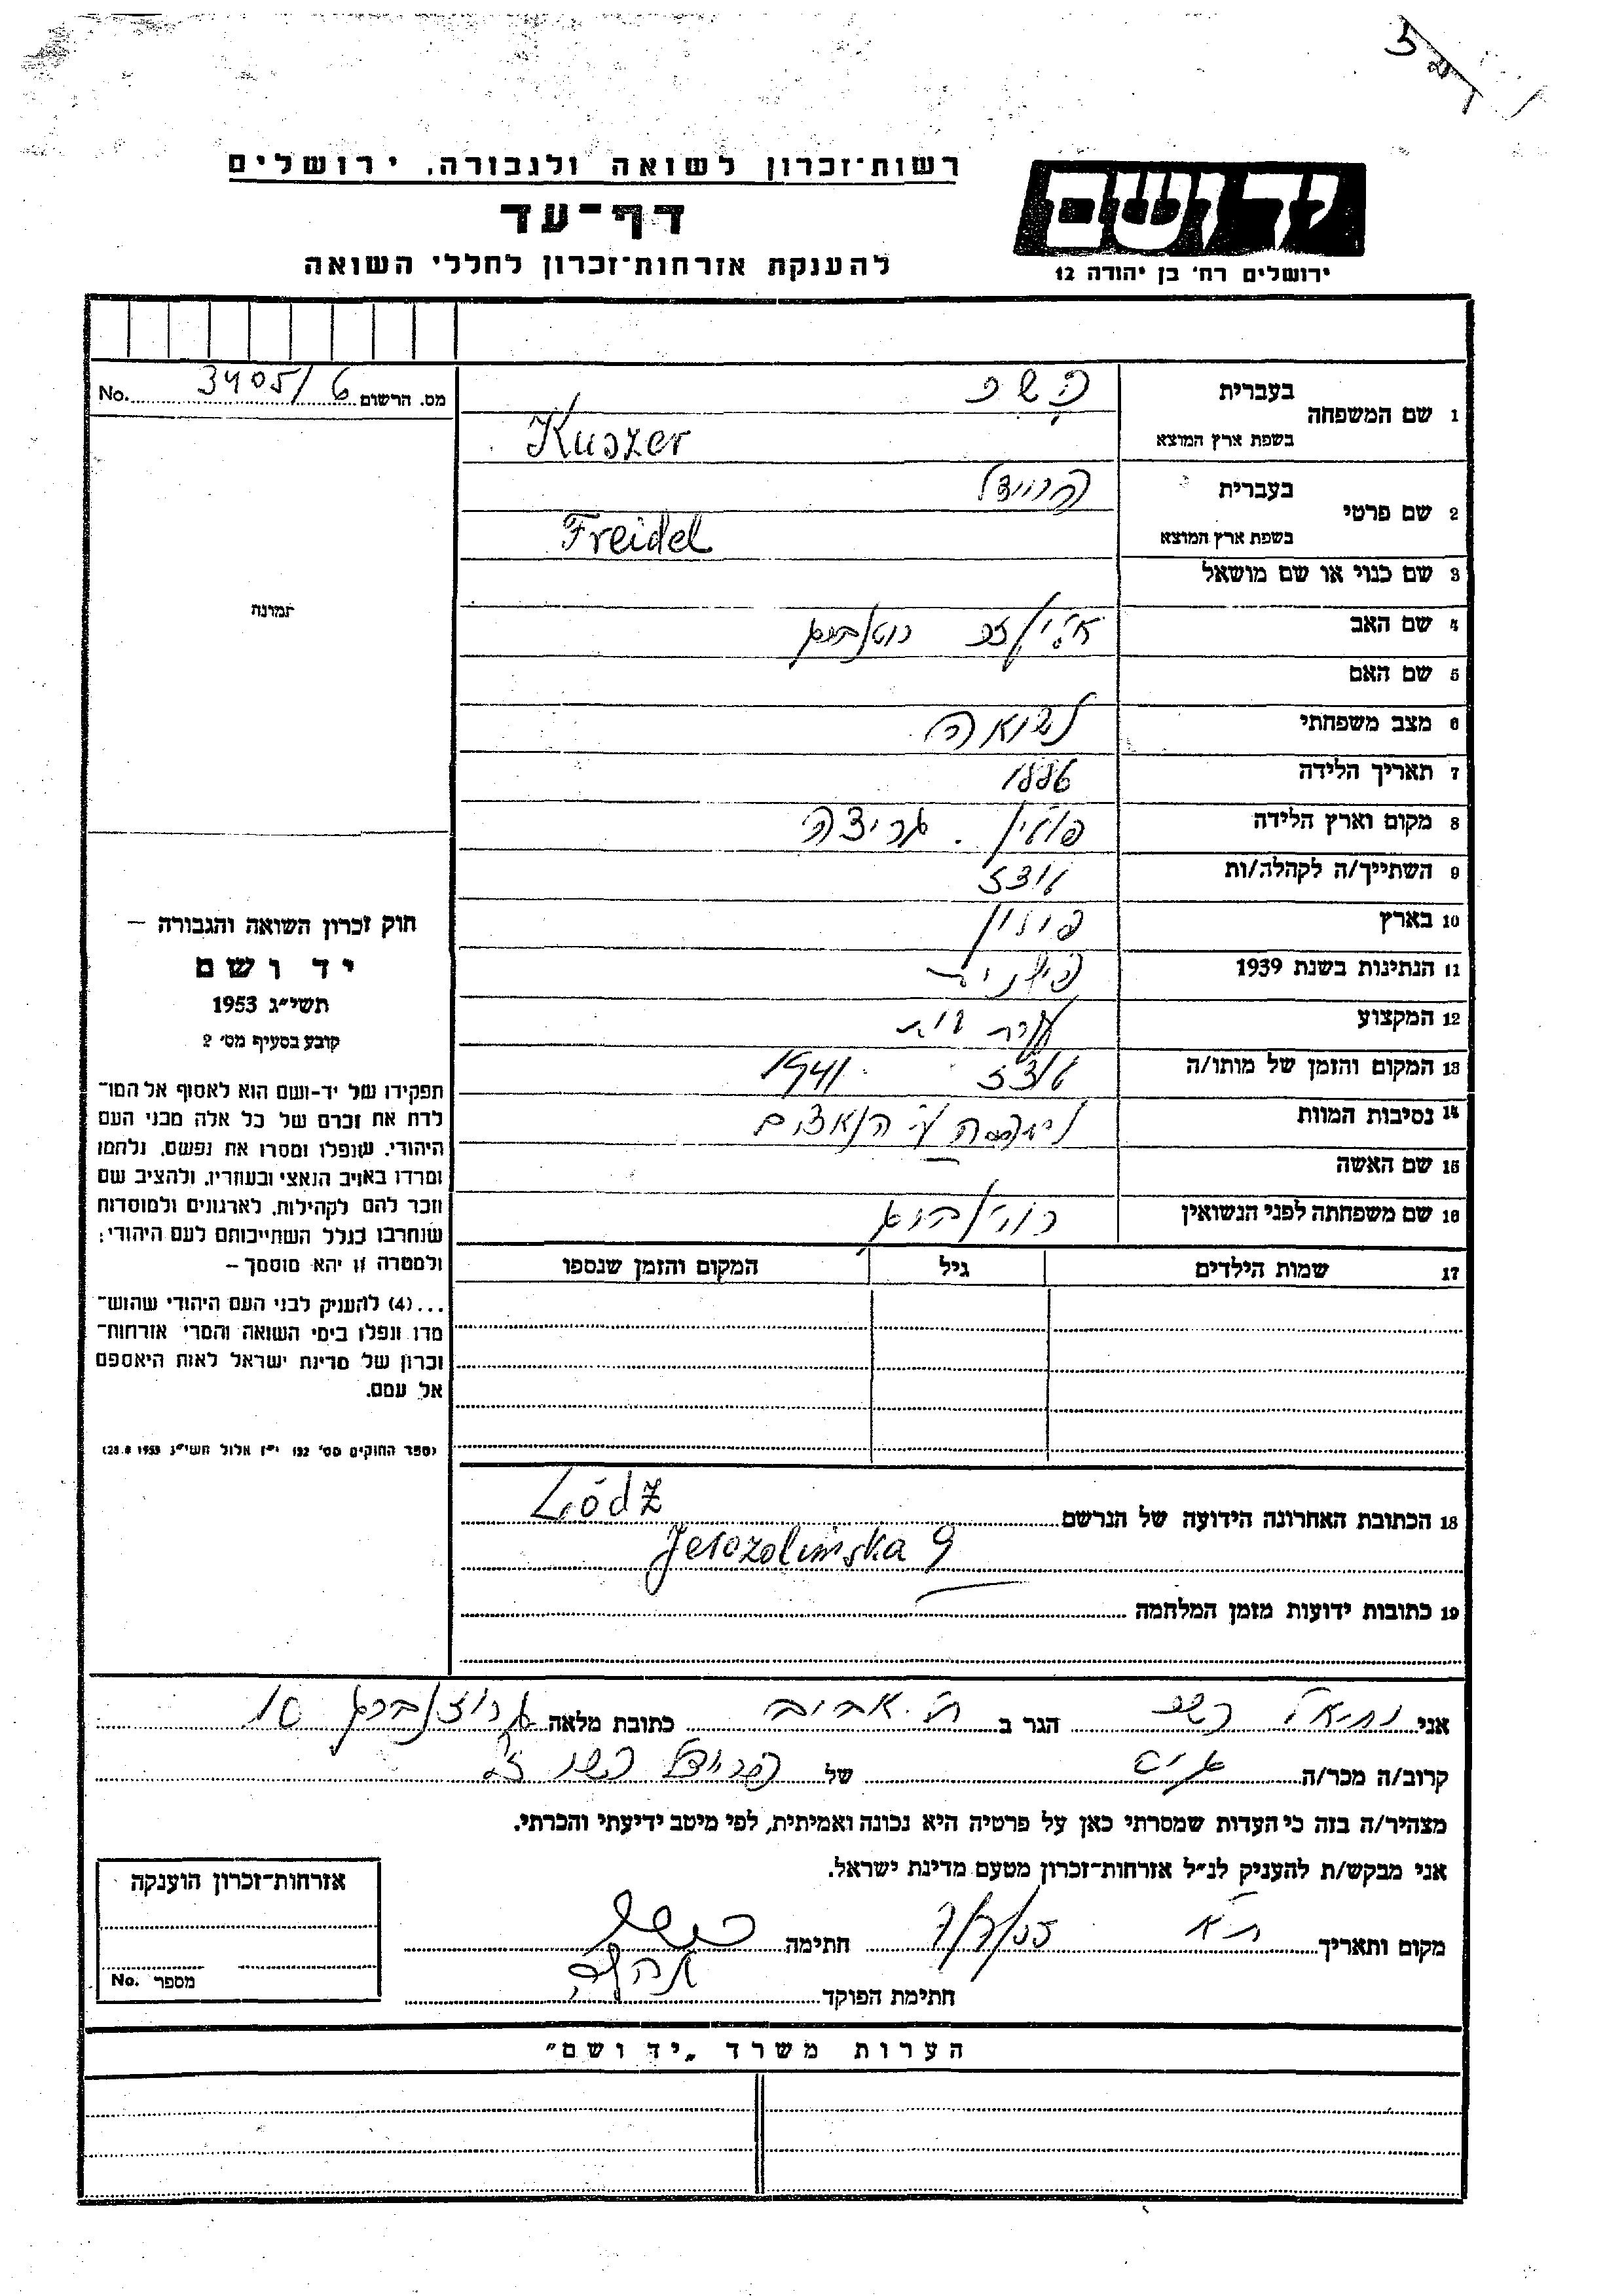 רשות־זכרון לשואה ולגבורה, ירושלים
דף־עד
להענקת אזרחות־זכרון לחללי השואה
יד ושם
ירושלים רח' בן יהודה 12
מס. הרשום 3405/6 No.
1 שם המשפחה
בעברית
בשפת ארץ המוצא Kuszer
2 שם פרטי
בעברית פריידל
בשפת ארץ המוצא Freidel
3 שם כנוי או שם מושאל
4 שם האב
5 שם האם
6 מצב משפחתי נשואה
7 תאריך הלידה 1886
8 מקום וארץ הלידה פולין. גריצה
9 השתייך/ה לקהלה/ות לודז
10 בארץ פולין
11 הנתינות בשנת 1939 פולנית
12 המקצוע עקרת בית
13 המקום והזמן של מותו/ה לודז 1941
14 נסיבות המוות ע"י הנאצים
15 שם האשה
16 שם משפחתה לפני הנשואין
17 שמות הילדים גיל המקום והזמן שנספו
18 הכתובת האחרונה הידועה של הנרשם Łódź
Jerozolimska 9
19 כתובות ידועות מזמן המלחמה
תמונה
חוק זכרון השואה והגבורה –
יד ושם
תשי״ג 1953
קובע בסעיף מס׳ 2
תפקידו של יד-ושם הוא לאסוף אל המו־
לדת את זכרם של כל אלה מבני העם
היהודי, שנפלו ומסרו את נפשם, נלחמו
ומרדו באויב הנאצי ובעוזריו, ולהציב שם
וזכר להם לקהילות, לארגונים ולמוסדות
שנחרבו בגלל השתייכותם לעם היהודי;
ולמטרה זו יהא מוסמך –
...(4) להעניק לבני העם היהודי שהוש־
מדו ונפלו בימי השואה והמרי אזרחות־
זכרון של מדינת ישראל לאות היאספם
אל עמם.
(ספר החוקים מס׳ 132 י״ז אלול תשי״ג 28.8.1953)
אני הגר ב ת. אביב כתובת מלאה 10
קרוב/ה מכר/ה של פריידל
מצהיר/ה בזה כי העדות שמסרתי כאן על פרטיה היא נכונה ואמיתית, לפי מיטב ידיעתי והכרתי.
אני מבקש/ת להעניק לנ״ל אזרחות־זכרון מטעם מדינת ישראל.
מקום ותאריך ת"א 7/7/55 חתימה
חתימת הפוקד
אזרחות־זכרון הוענקה
מספר No.
הערות משרד „יד ושם״